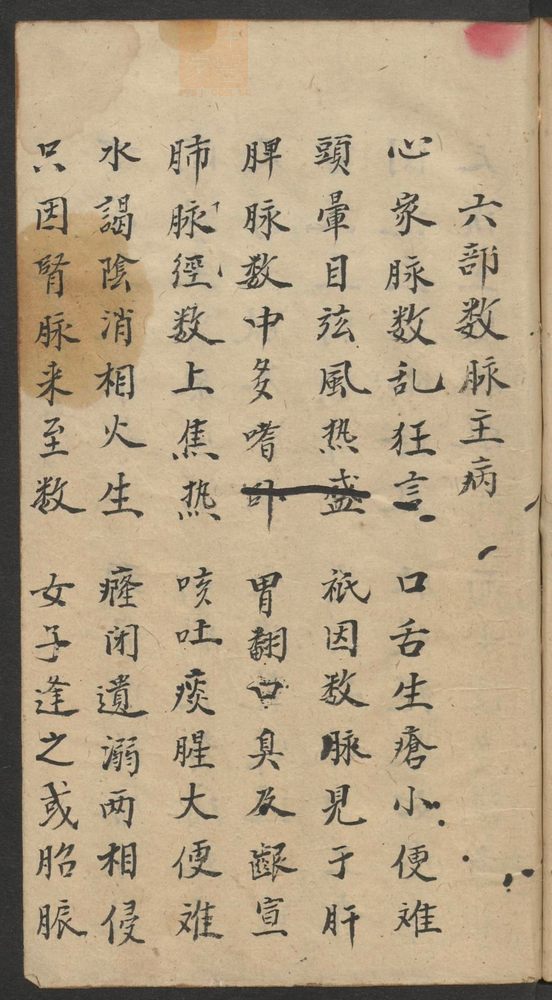 六部数脉主病
心家脉数乱狂言 口舌生瘡小便难
頭暈目弦風热盛 祇因数脉見于肝
脾脉数中多嗜卧 胃翻口臭及齦宣
肺脉經数上焦热 咳吐痰腥大便难
水謁陰消相火生 癃闭遺溺两相侵
只因腎脉来至数 女子逢之或胎脤